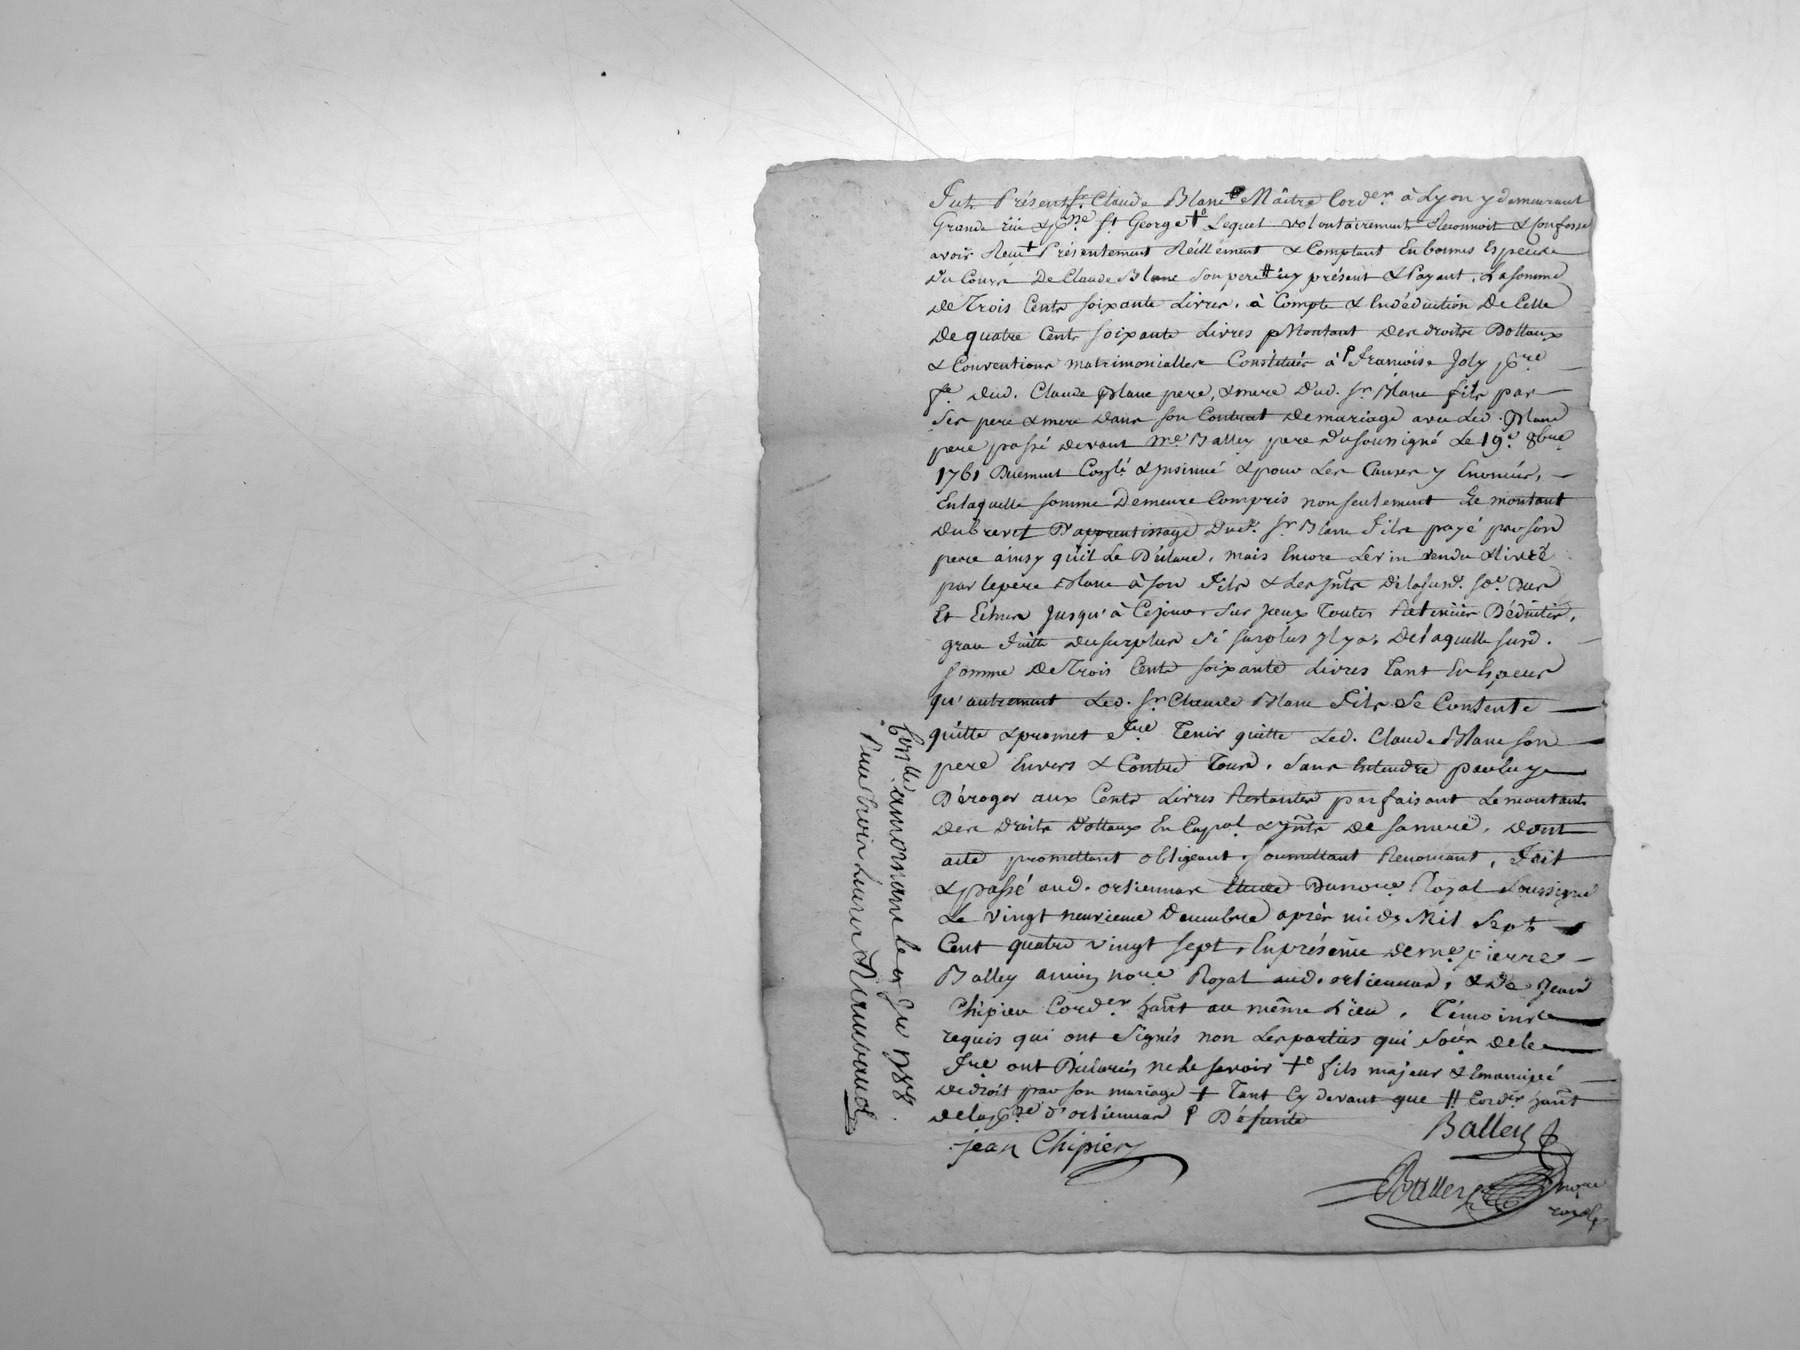 Fut Présent Sr. Claude Blanc Maître Cord.er à Lyon y demeurant
Grande rue & p.sse St George +o Lequel volontairement Reconnoit & Confesse
avoir Reçu + Présentement Réellement & Comptant En bonnes Espece
du Cours De Claude Blanc Son pere # icy présent & Payant, La somme
de Trois Cents soixante Livres, à Compte & En déduction De Celle
De quatre Cents soixante Livres Montant des droits Dottaux
& Conventions matrimonialles Constitués à Francoise Joly
f.e dud. Claude Blanc pere, & mere Dud. Sr. Blanc fils par
Ses pere & mere dans son Contrat de mariage avec Led. Blanc
pere passé devant Me. Balley pere du soussigné Le 19.e 8bre
1761 Duement Conlé & Insinué & pour Les Causes y Enoncées,
En laquelle somme Demeure Compris non seulement Le montant
du brevet D'apprentissage Dud. Sr. Blanc Fils payé par son
pere ainsy qu'il Le Déclare, mais Encore Le vin vendu & livré
par le pere Blanc à son Fils & Les Jnts De la susd. s.e Dus
Et Echus Jusqu'à Ce jour, Sur Jceux Toutes Retenües Déduites,
grace Faitte du surplus Si surplus Jl y a, De laquelle susd.
somme De Trois Cents soixante Livres Tant En Especes
qu'autrement Led. Sr. Claude Blanc Fils Se Contente
quitte & promet Faire Tenir quitte Led. Claude Blanc son
pere Envers & Contre Tous, Sans Entendre par luy
Déroger aux Cents Livres Restantes parfaisant Le montant
des Droits Dottaux En Capal & Jnts De sa mere, Dont
acte promettant obligeant, soumettant Renonçant, Fait
& passé aud. orliennas Etude Du noire Royal soussigné
Le vingt neuvieme Decembre après midy Mil Sept
Cent quatre vingt sept, En présence de Me. pierre
Balley ancien noire Royal aud. orliennas, & De Jean
Chipier Cord.er hant au même Lieu, Témoins
requis qui ont signés non Les parties qui de le
Fre ont Déclarés ne le savoir +o fils majeur & Emancipé
de droit par son mariage + Tant Cy devant que # Cord.er hant
de la p.sse d'orliennas Défunte
Jean Chipier
Balley
Balley noire
royal
Conllé a mornant le 9 Jer 1788.
Reçu trois livres Rambaud